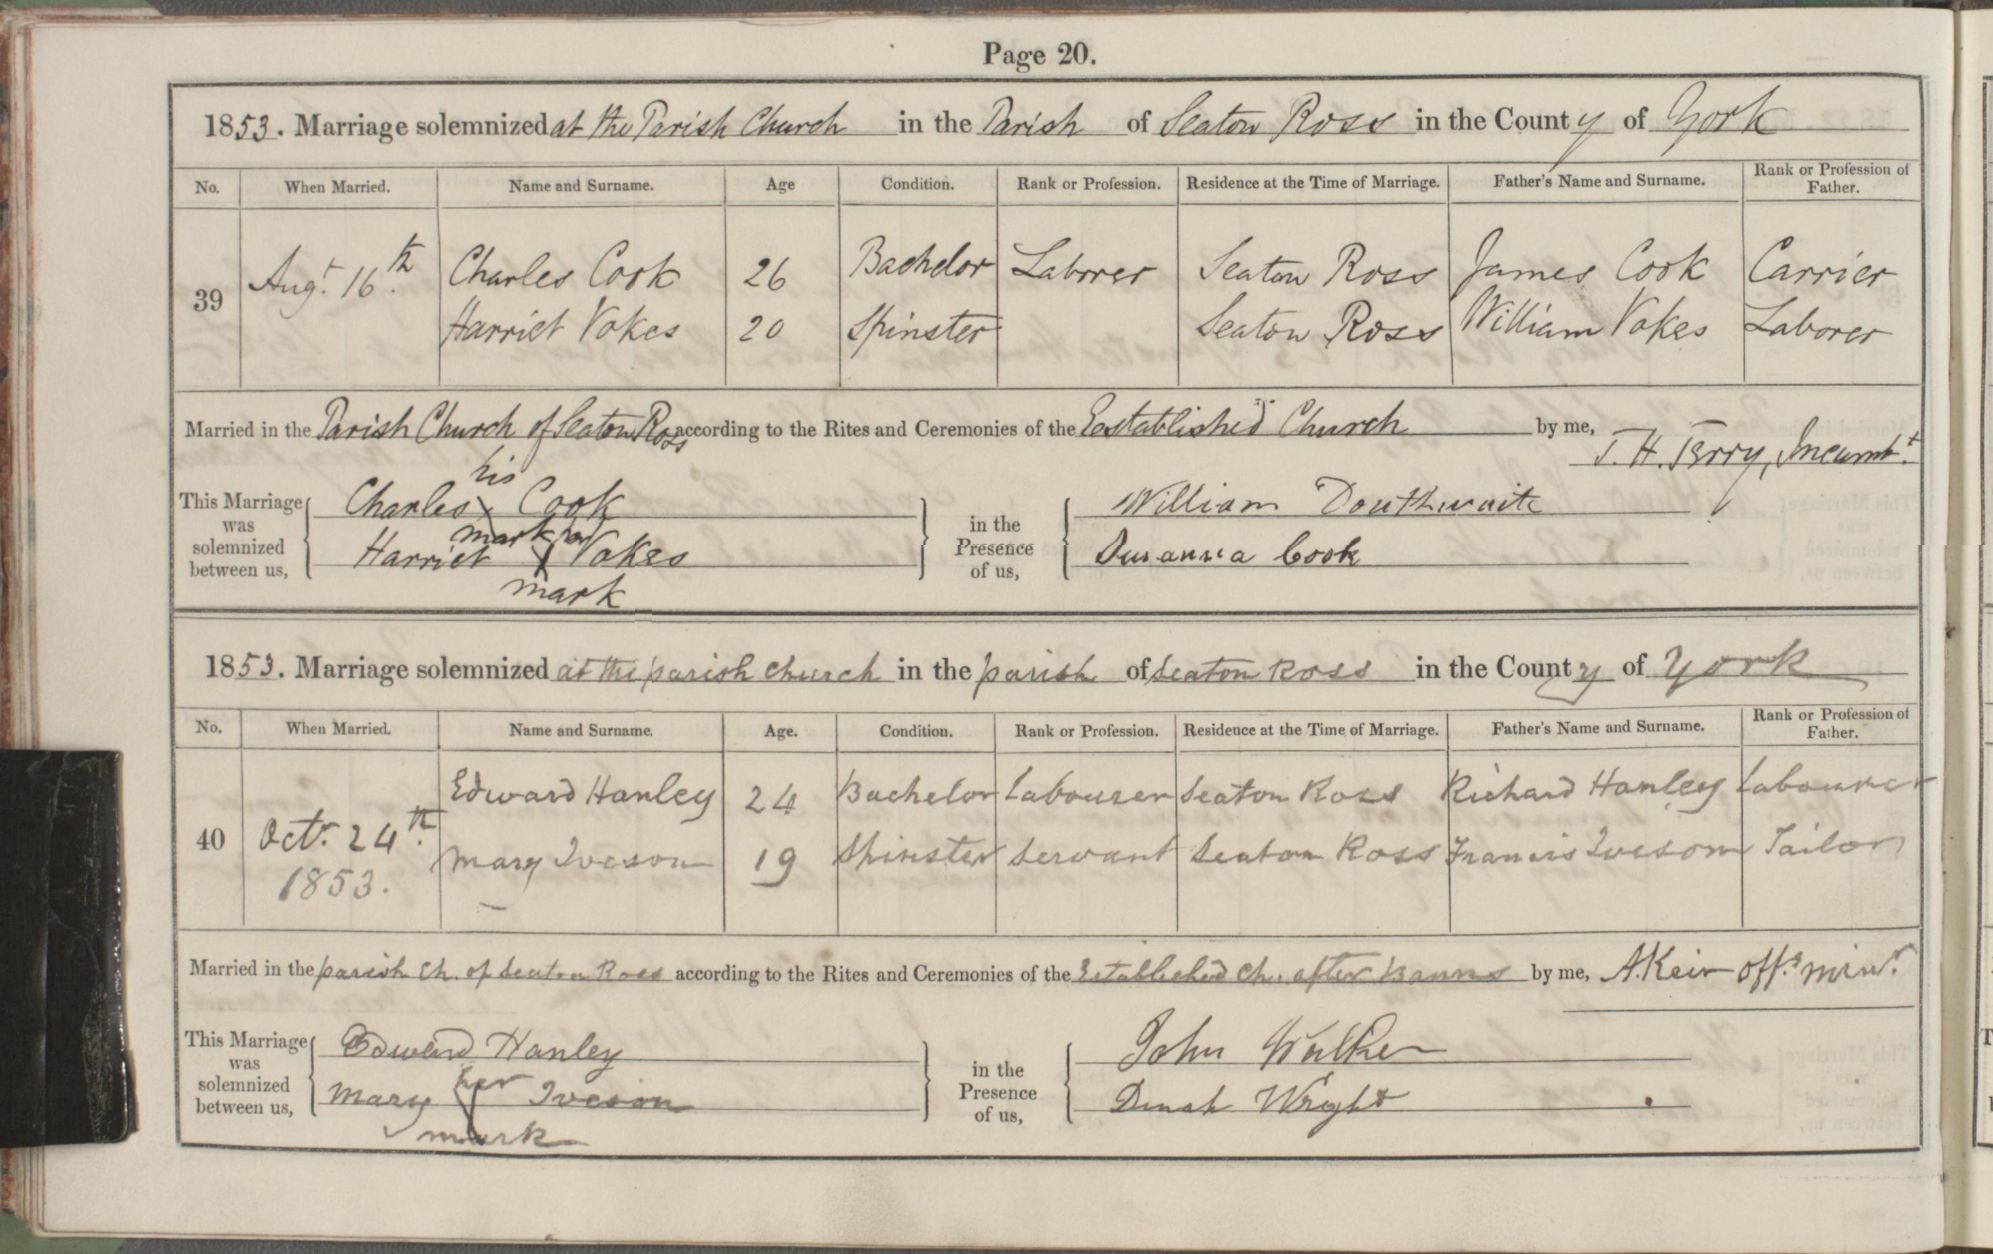 Page 20.
1853. Marriage solemnized at the Parish Church in the Parish of Seaton Ross in the County of York
No. When Married. Name and Surname. Age Condition. Rank or Profession. Residence at the Time of Marriage. Father's Name and Surname. Rank or Profession of Father.
39 Augt. 16th. Charles Cook 26 Bachelor Laborer Seaton Ross James Cook Carrier
Harriet Vokes 20 Spinster Seaton Ross William Vokes Laborer
Married in the Parish Church of Seaton Ross according to the Rites and Ceremonies of the Established Church by me, T. H. Terry, Incumbt.
This Marriage was solemnized between us, Charles his X Cook mark
Harriet her X Vokes mark
in the Presence of us, William Douthwaite
Susanna Cook
1853. Marriage solemnized at the parish church in the parish of Seaton Ross in the County of York
No. When Married. Name and Surname. Age. Condition. Rank or Profession. Residence at the Time of Marriage. Father's Name and Surname. Rank or Profession of Father.
40 Octr. 24th. 1853. Edward Hanley 24 Bachelor Labourer Seaton Ross Richard Hanley Labourer
Mary Iveson 19 Spinster Servant Seaton Ross Francis Iveson Tailor
Married in the parish Ch. of Seaton Ross according to the Rites and Ceremonies of the Established Ch. after Banns by me, A. Keir offg. minr.
This Marriage was solemnized between us, Edward Hanley
Mary her X Iveson mark
in the Presence of us, John Walker
Dinah Wright